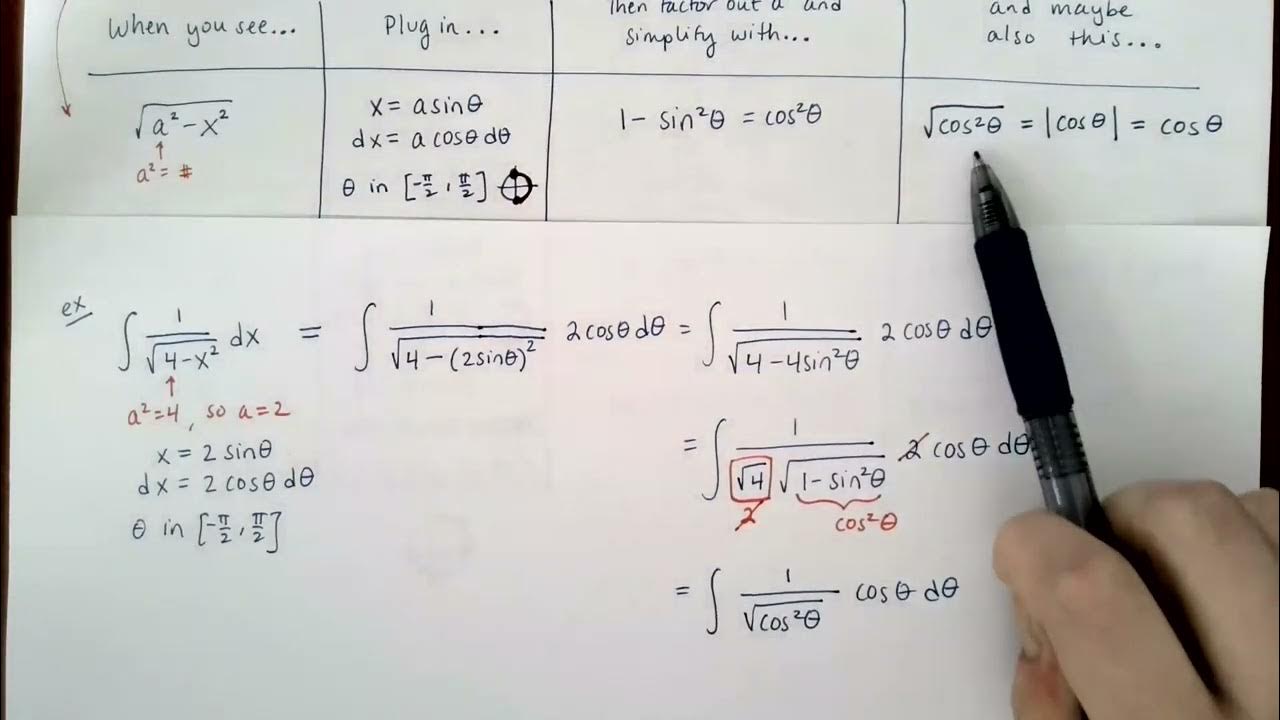 When you see...
Plug in...
Then factor out a and
simplify with...
and maybe
also this...
√(a² - x²)
a² = #
x = a sinθ
dx = a cosθ dθ
θ in [-π/2, π/2]
1 - sin²θ = cos²θ
√(cos²θ) = |cosθ| = cosθ
ex
∫ 1/√(4-x²) dx = ∫ 1/√(4-(2sinθ)²) 2cosθ dθ = ∫ 1/√(4-4sin²θ) 2cosθ dθ
a²=4, so a=2
x = 2 sinθ
dx = 2 cosθ dθ
θ in [-π/2, π/2]
= ∫ 1/(√4 √(1-sin²θ)) 2 cosθ dθ
2
cos²θ
= ∫ 1/√(cos²θ) cosθ dθ